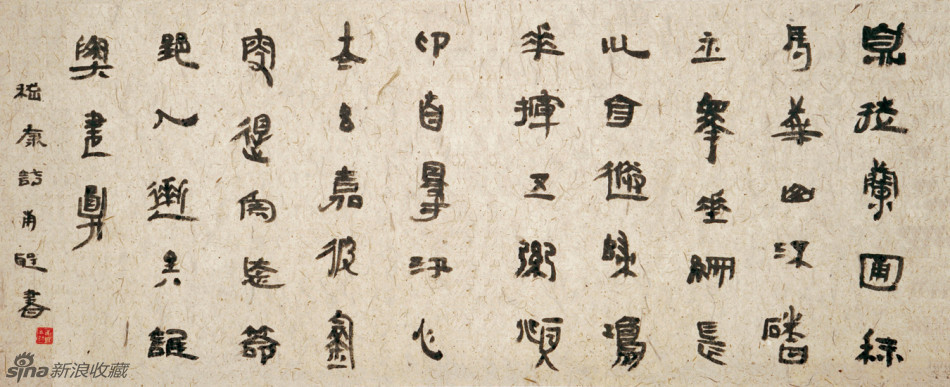 息徒蘭圃秣
馬華山流磻
平皋垂綸長
川目送歸鴻
手揮五弦俯
卬自得游心
太玄嘉彼釣
叟得魚忘筌
郢人逝矣誰
與盡言
嵇康詩 書
sina新浪收藏